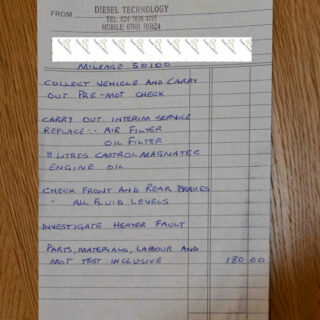 FROM
DIESEL TECHNOLOGY
TEL: 024 7638 4195
MOBILE: 07801 703624
MILEAGE 50100
COLLECT VEHICLE AND CARRY
OUT PRE-MOT CHECK
CARRY OUT INTERIM SERVICE
REPLACE:- AIR FILTER
OIL FILTER
8 LITRES CASTROL MAGNATEC
ENGINE OIL
CHECK FRONT AND REAR BRAKES
" ALL FLUID LEVELS
INVESTIGATE HEATER FAULT
PARTS, MATERIALS, LABOUR AND
MOT TEST INCLUSIVE 180 00